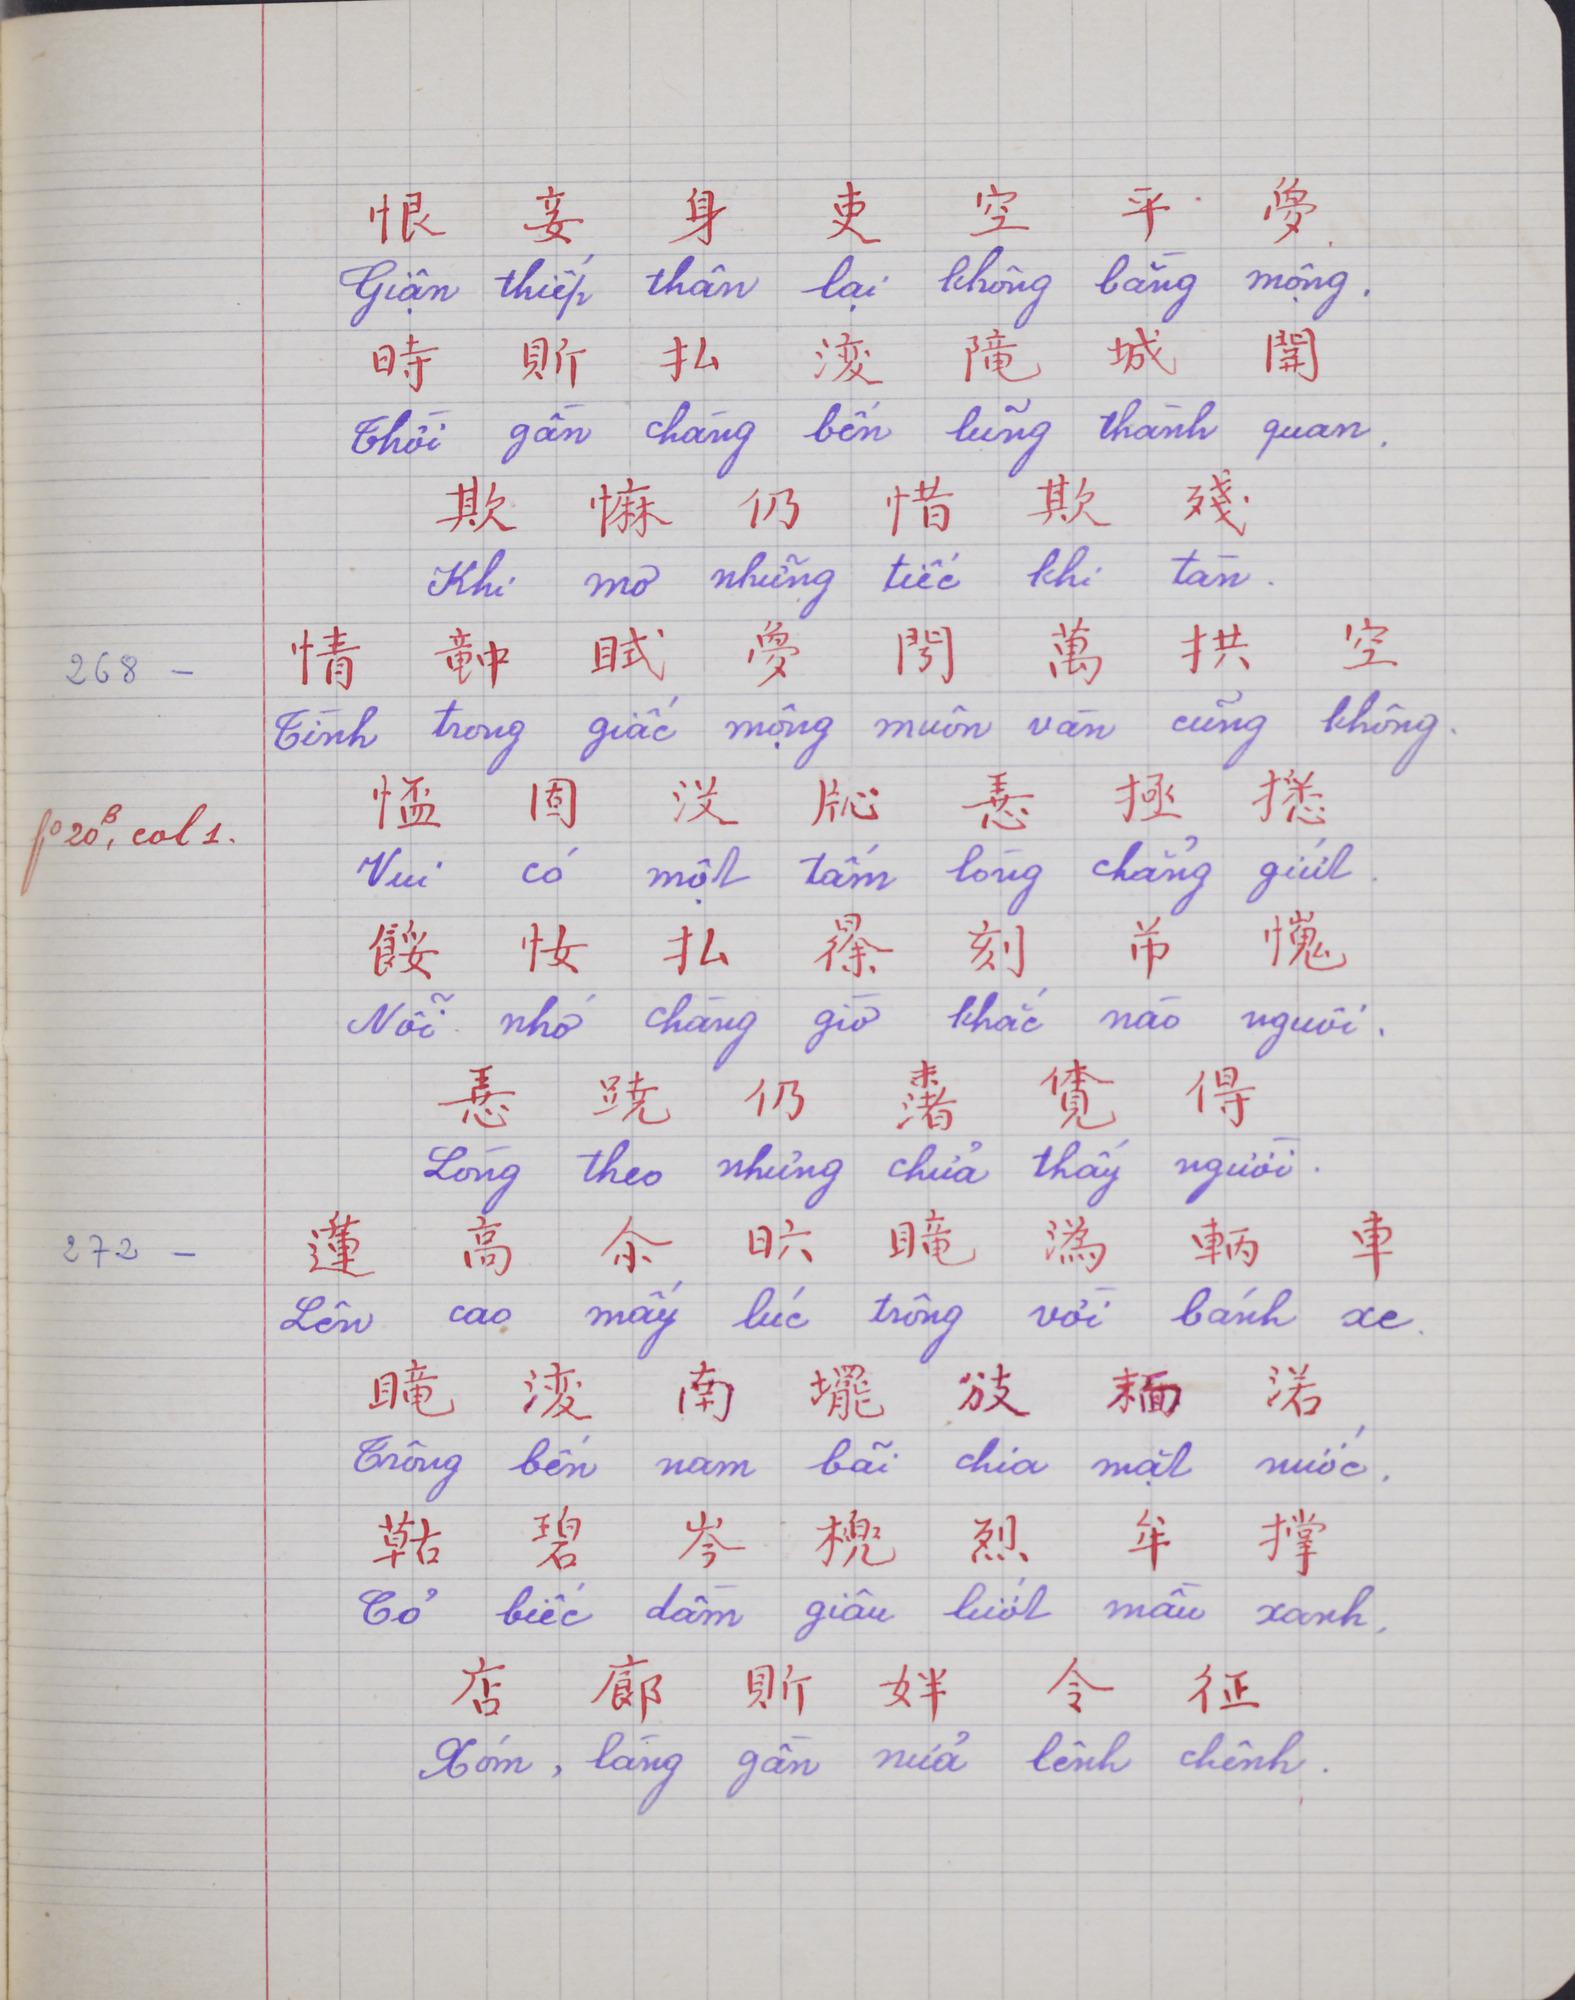 恨 妾 身 吏 空 平 夢
Giận thiếp thân lại không bằng mộng.
時 𧵆 払 𣷷 隴 城 関
Thời gần chàng bến lũng thành quan.
欺 𢠩 仍 惜 欺 殘
Khi mơ những tiếc khi tàn.
268 — 情 𥪞 聀 夢 閍 萬 拱 空
Tình trong giấc mộng muôn vàn cũng không.
f° 20 β, col 1. 固 沒 𢚸 拯
Vui có một tấm lòng chẳng giứt.
餒 𢖵 払 𣇞 刻 芇
Nỗi nhớ chàng giờ khắc nào nguôi.
𢚸 蹺 仍 渚 𧡊 得
Lòng theo nhưng chửa thấy người.
272 — 蓮 高 尒 𣅶 𥊣 溈 車
Lên cao mấy lúc trông vời bánh xe.
𥊣 𣷷 南 𡓁 𢺹 𩈘 渃
Trông bến nam bãi chia mặt nước.
𦹵 碧 岑 烈 牟 撑
Cỏ biếc dầm giâu lướt mầu xanh.
店 廊 𧵆 姅 令 征
Xóm, làng gần nửa lênh chênh.